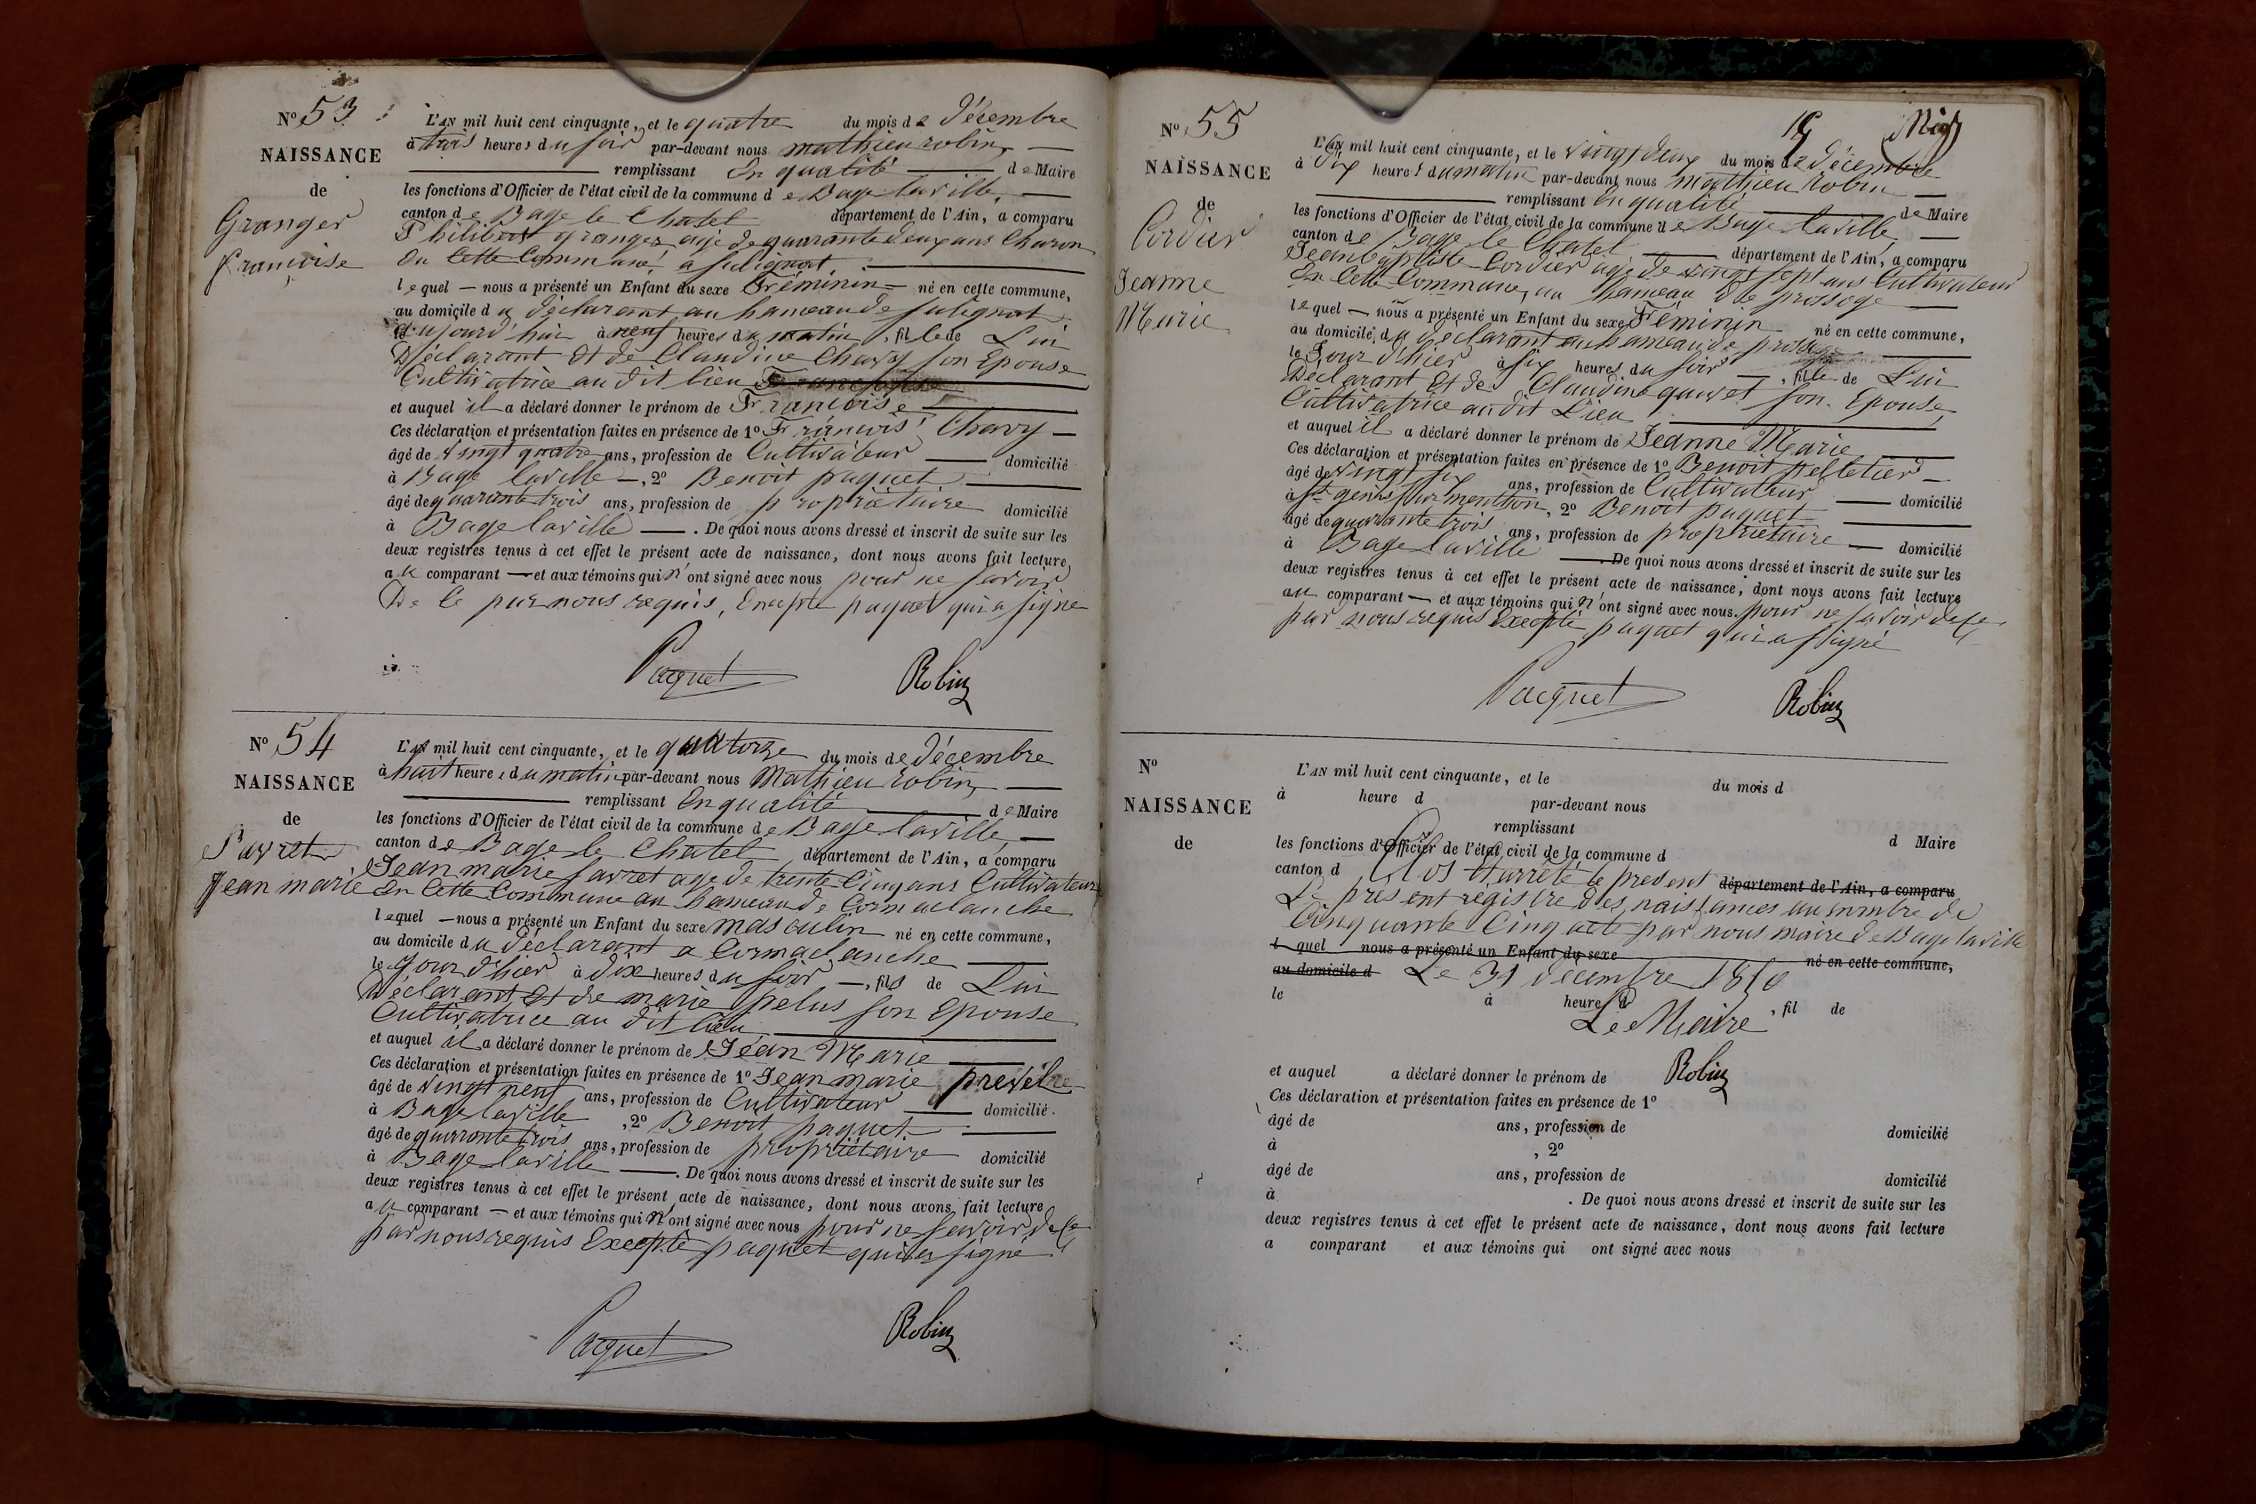 N° 53
NAISSANCE
de
Granger
françoise
L'AN mil huit cent cinquante, et le quatre du mois de Décembre
à trois heures du soir par-devant nous mathieu robin
remplissant En qualité de Maire
les fonctions d'Officier de l'état civil de la commune de Bage laville,
canton de Bage le Chatel département de l'Ain, a comparu
Philibert granger agé de quarante deux ans Charon
En Cette Commune, a
lequel nous a présenté un Enfant du sexe Féminin né en cette commune,
au domicile du déclarant au hameau de
aujourd'hui à neuf heures du matin, fille de Lui
Déclarant Et de Claudine Chavy son Epouse
Cultivatrice au dit lieu
et auquel il a déclaré donner le prénom de Françoise
Ces déclaration et présentation faites en présence de 1° François Chavy
âgé de vingt quatre ans, profession de Cultivateur domicilié
à Bage laville, 2° Benoit paquet
âgé de quarante trois ans, profession de propriétaire domicilié
à Bage laville. De quoi nous avons dressé et inscrit de suite sur les
deux registres tenus à cet effet le présent acte de naissance, dont nous avons fait lecture
au comparant et aux témoins qui n'ont signé avec nous pour ne savoir
De ce par nous requis, Excepté paquet qui a signé
Pacquet Robin
N° 54
NAISSANCE
de
Favret
Jean marie
L'AN mil huit cent cinquante, et le quatorze du mois de décembre
à huit heures du matin par-devant nous Mathieu robin,
remplissant En qualité de Maire
les fonctions d'Officier de l'état civil de la commune de Bage laville,
canton de Bage le Chatel département de l'Ain, a comparu
Jean marie favret age de trente Cinq ans Cultivateur
En Cette Commune au hameau de Cormaclanche
lequel nous a présenté un Enfant du sexe masculin né en cette commune,
au domicile du déclarant a Cormaclanche
le Jour d'hier à dix heures du soir, fils de Lui
Déclarant Et de marie pelus son Epouse
Cultivatrice au dit lieu
et auquel il a déclaré donner le prénom de Jean Marie
Ces déclaration et présentation faites en présence de 1° Jean marie
âgé de vingt neuf ans, profession de Cultivateur domicilié
à Bage laville, 2° Benoit paquet
âgé de quarante trois ans, profession de propriétaire domicilié
à Bage laville. De quoi nous avons dressé et inscrit de suite sur les
deux registres tenus à cet effet le présent acte de naissance, dont nous avons fait lecture
au comparant et aux témoins qui n'ont signé avec nous pour ne savoir de ce
par nous requis Excepté paquet qui a signé
Pacquet Robin
N° 55
NAISSANCE
de
Cordier
Jeanne
Marie
L'AN mil huit cent cinquante, et le vingt deux du mois de décembre
à dix heures du matin par-devant nous mathieu robin
remplissant En qualité de Maire
les fonctions d'Officier de l'état civil de la commune de Bage laville,
canton de Bage le Chatel département de l'Ain, a comparu
Jean baptiste Cordier agé de vingt sept ans Cultivateur
En Cette Commune, au hameau de
lequel nous a présenté un Enfant du sexe Féminin né en cette commune,
au domicile du déclarant au hameau de
le Jour d'hier à six heures du soir, fille de Lui
Déclarant Et de Claudine son Epouse,
Cultivatrice au dit Lieu
et auquel il a déclaré donner le prénom de Jeanne Marie
Ces déclaration et présentation faites en présence de 1° Benoit pelletier
âgé de vingt six ans, profession de Cultivateur domicilié
à St genis sur menthon, 2° Benoit paquet
âgé de quarante trois ans, profession de propriétaire domicilié
à Bage laville. De quoi nous avons dressé et inscrit de suite sur les
deux registres tenus à cet effet le présent acte de naissance, dont nous avons fait lecture
au comparant et aux témoins qui n'ont signé avec nous pour ne savoir de ce
par nous requis Excepté paquet qui a signé
Pacquet Robin
N°
NAISSANCE
de
L'AN mil huit cent cinquante, et le du mois d
à heure d par-devant nous
remplissant d Maire
les fonctions d'Officier de l'état civil de la commune d
canton d Clos et arrêté le present département de l'Ain, a comparu
Le present registre des naissances au nombre de
Cinquante Cinq acte par nous maire de Bage laville
l quel nous a présenté un Enfant du sexe né en cette commune,
au domicile d Le 31 décembre 1850
le à heure d, fil de
Le Maire
Robin
et auquel a déclaré donner le prénom de
Ces déclaration et présentation faites en présence de 1°
âgé de ans, profession de domicilié
à , 2°
âgé de ans, profession de domicilié
à . De quoi nous avons dressé et inscrit de suite sur les
deux registres tenus à cet effet le présent acte de naissance, dont nous avons fait lecture
a comparant et aux témoins qui ont signé avec nous